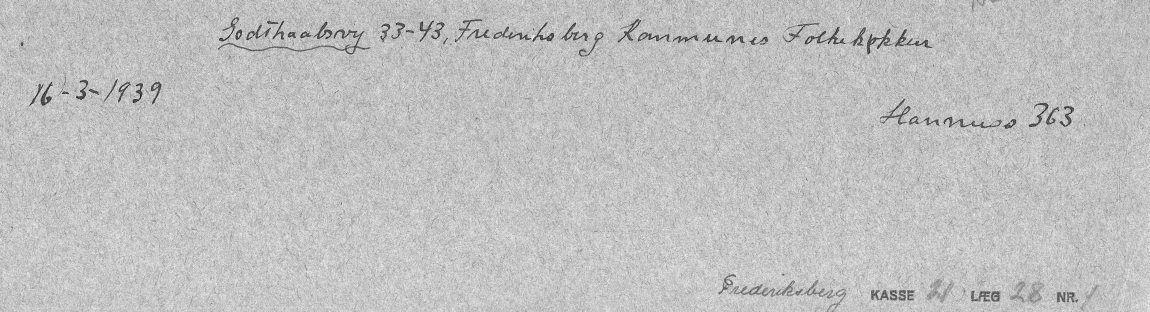 Godthaabsvej 33-43, Frederiksberg Kommunes Folkekøkken
16-3-1939
Hannuss 363
Frederiksberg KASSE 21 LÆG 28 NR. 1